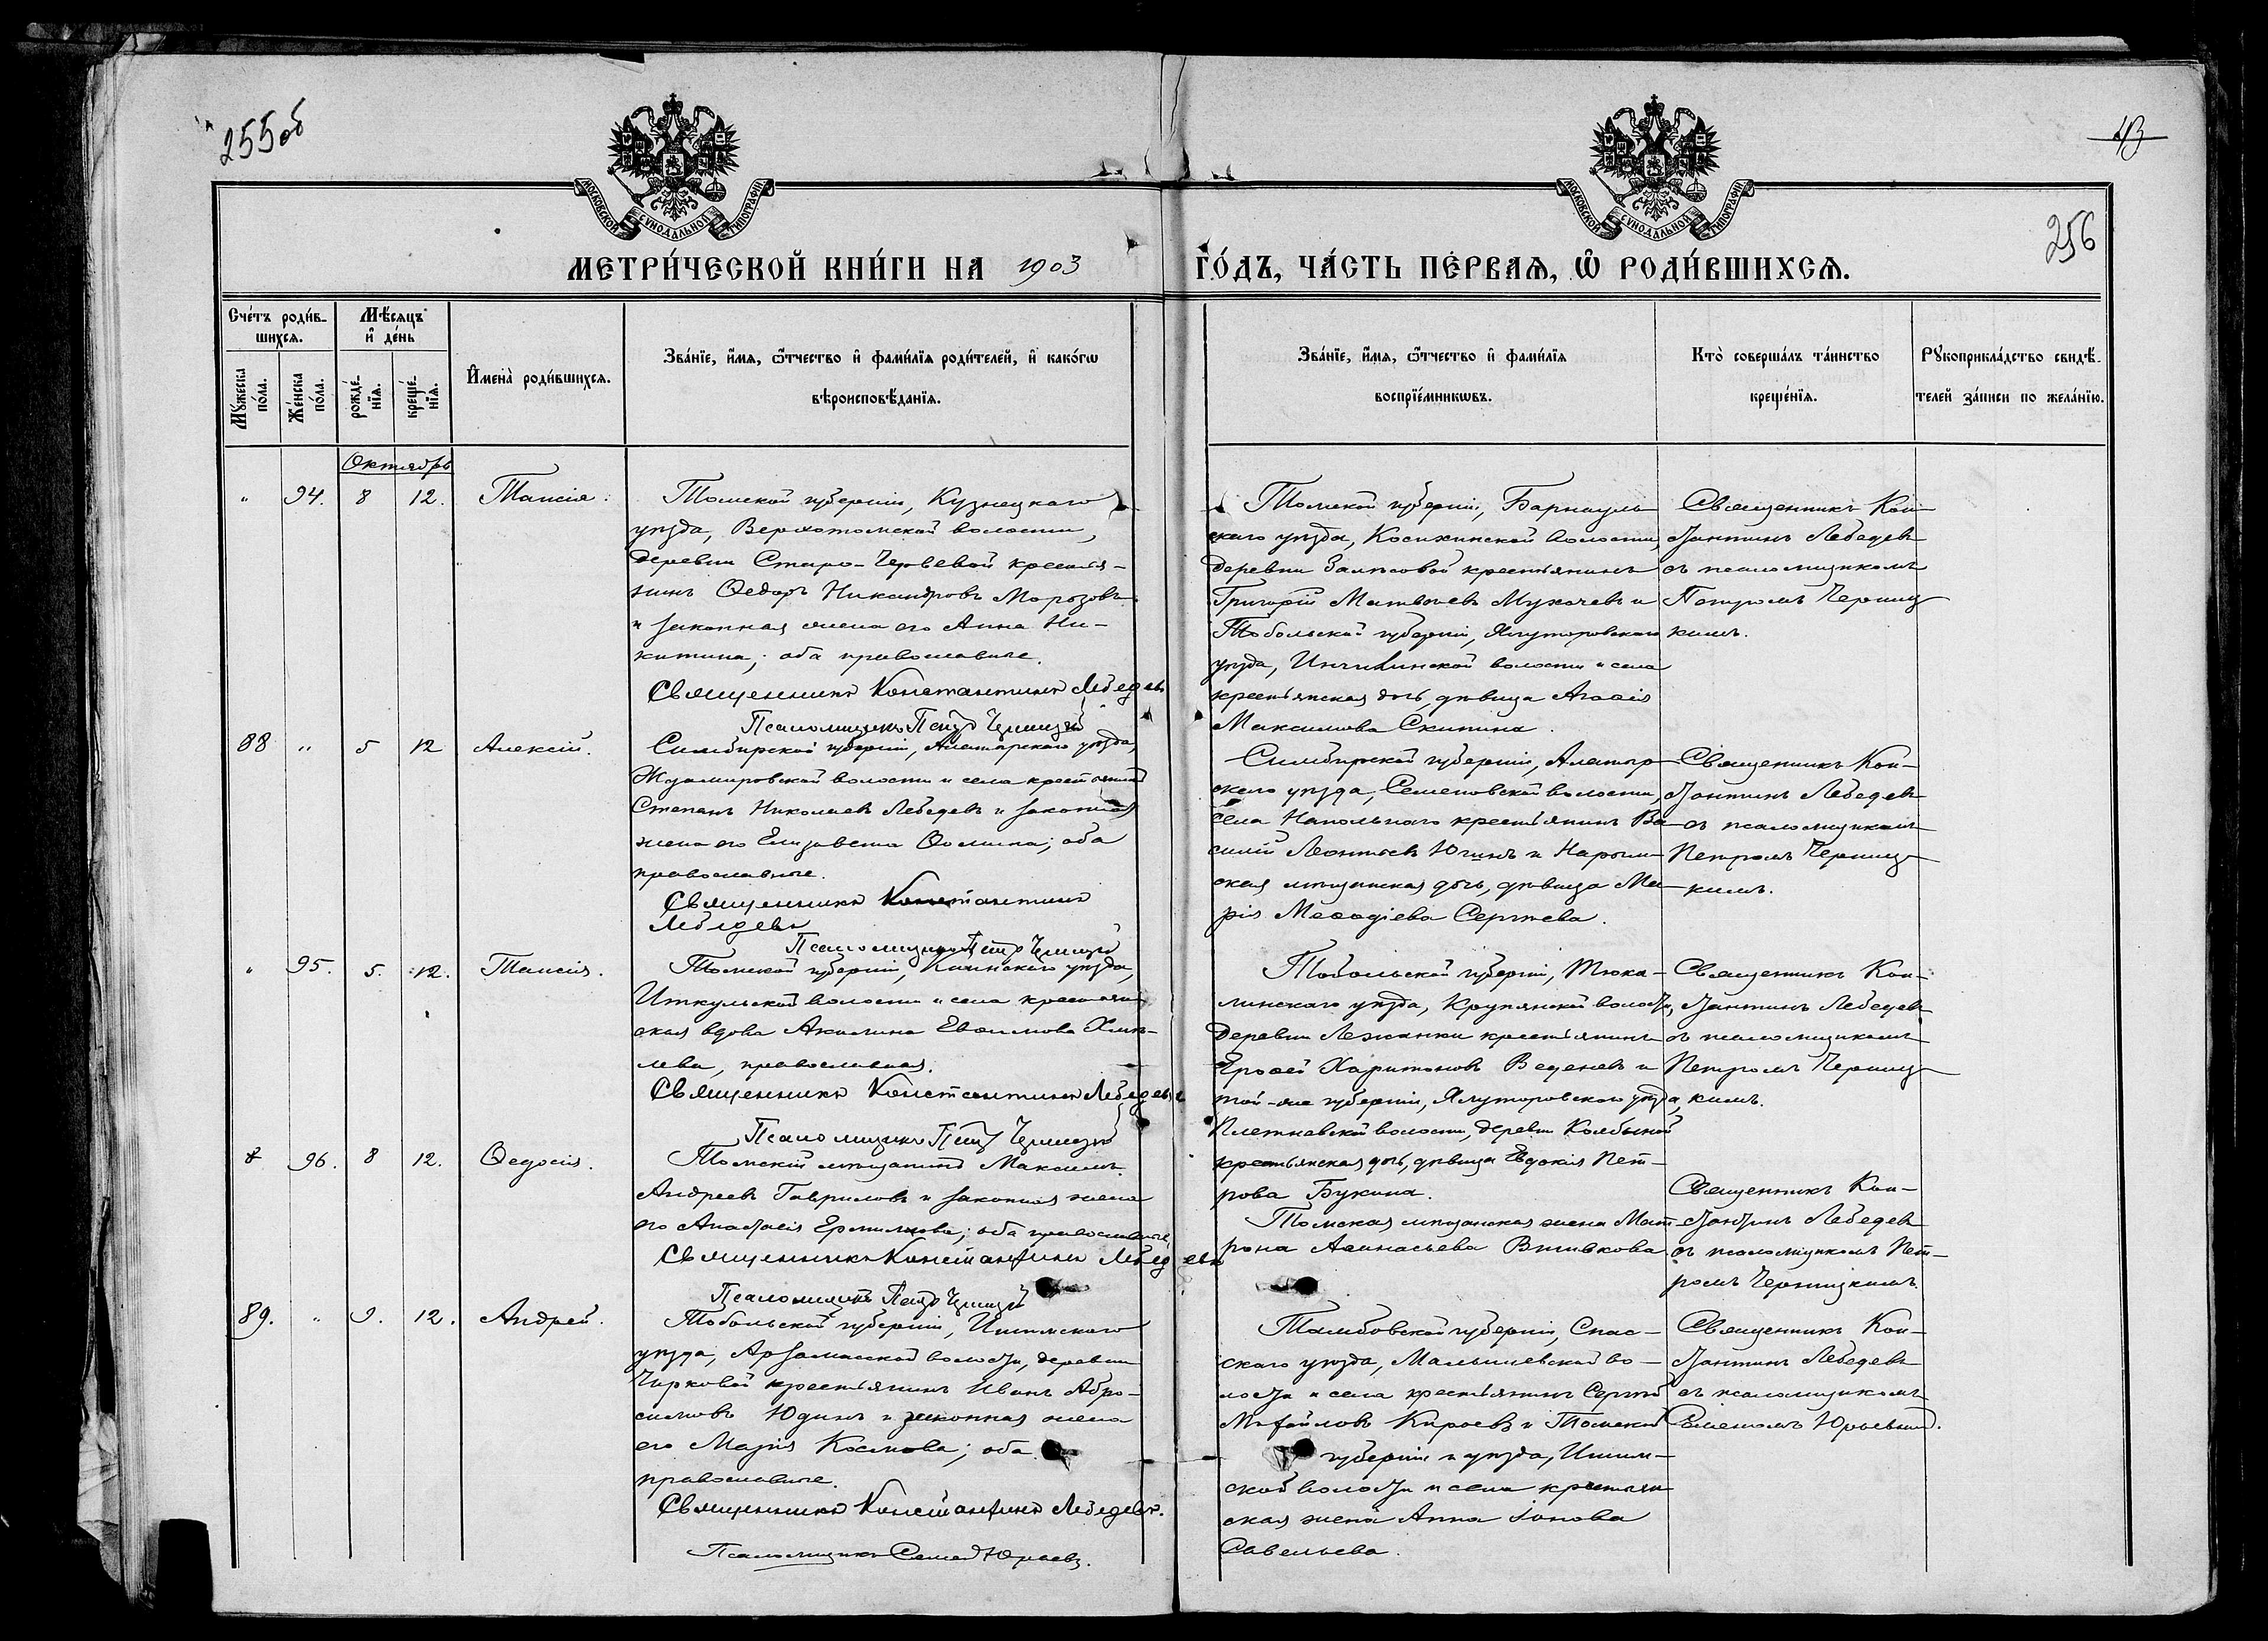 255 об
43
256
МОСКОВСКОЙ СѴНОДАЛЬНОЙ ТИПОГРАФІИ
МОСКОВСКОЙ СѴНОДАЛЬНОЙ ТИПОГРАФІИ
МЕТРИ́ЧЕСКОЙ КНИ́ГИ НА 1903 ГО́ДЪ, ЧА́СТЬ ПЕ́РВАѦ, Ѽ РОДИ́ВШИХСѦ.
Сче́тъ роди́в-
шихсѧ.
Мꙋ́жеска по́ла.
Же́нска по́ла.
Мѣ́сѧцъ и҆ де́нь
рожде́-нїѧ.
креще́-нїѧ.
И҆мена̀ роди́вшихсѧ.
Зва́нїе, и҆́мѧ, ѻ҆́тчество и҆ фами́лїѧ роди́телей, и҆ како́гѡ
вѣроисповѣ́данїѧ.
Зва́нїе, и҆́мѧ, ѻ҆́тчество и҆ фами́лїѧ
воспрїе́мникѡвъ.
Кто̀ соверша́лъ та́инство
креще́нїѧ.
Рꙋкоприкла́дство свидѣ́-
телей за́писи по жела́нїю.
Октябрь
" 94. 8 12. Таисія.
Томской губерніи, Кузнецкаго
уѣзда, Верхотомской волости,
деревни Старо-Червевой крестья-
нинъ Ѳедоръ Никандровъ Морозовъ
и законная жена его Анна Ни-
китина; оба православные.
Священникъ Константинъ Лебедевъ
Псаломщикъ Петръ Черницкій
Томской губерніи, Барнауль-
скаго уѣзда, Косихинской волости,
деревни Залѣсовой крестьянинъ
Григорій Матвѣевъ Мухачевъ и
Тобольской губерніи, Ялуторовскаго
уѣзда, волости и села
крестьянская дочь, дѣвица Агаѳія
Максимова Скипина.
Священникъ Кон-
стантинъ Лебедевъ
съ псаломщикомъ
Петромъ Черниц-
кимъ.
88 " 5 12 Алексій.
Симбирской губерніи, Алатырскаго уѣзда,
Ждамировской волости и села крестьянинъ
Степанъ Николаевъ Лебедевъ и законная
жена его Елизавета Ѳомина; оба
православные.
Священникъ Константинъ
Лебедевъ
Псаломщикъ Петръ Черницкій
Симбирской губерніи, Алатыр-
скаго уѣзда, Семеновской волости,
села Напольнаго крестьянинъ Ва-
силій Леонтьевъ Югинъ и Нарым-
ская мѣщанская дочь, дѣвица Ма-
рія Меѳодіева Сергѣева.
Священникъ Кон-
стантинъ Лебедевъ
съ псаломщикомъ
Петромъ Черниц-
кимъ.
" 95. 5. 12. Таисія.
Томской губерніи, Каинскаго уѣзда,
Иткульской волости и села крестьян-
ская вдова Акилина Евѳимова Хмы-
лева, православная.
Священникъ Константинъ Лебедевъ
Псаломщикъ Петръ Черницкій
Тобольской губерніи, Тюка-
линскаго уѣзда, Крупянской волости,
деревни Лежанки крестьянинъ
Ероѳей Харитоновъ Веденевъ и
той-же губерніи, Ялуторовскаго уѣзда,
Плетневской волости, деревни
крестьянская дочь, дѣвица Евдокія Пет-
рова Букина.
Священникъ Кон-
стантинъ Лебедевъ
съ псаломщикомъ
Петромъ Черниц-
кимъ.
96. 8 12. Ѳедосія.
Томскій мѣщанинъ Максимъ
Андреевъ Гавриловъ и законная жена
его Анастасія Ермилова; оба православные.
Священникъ Константинъ Лебедевъ
Псаломщикъ Петръ Черницкій
Томская мѣщанская жена Мат-
рона Аѳанасьева Вшивкова.
Священникъ Кон-
стантинъ Лебедевъ
съ псаломщикомъ Пет-
ромъ Черницкимъ.
89. " 9. 12. Андрей.
Тобольской губерніи, Ишимскаго
уѣзда, волости, деревни
Чирковой крестьянинъ Иванъ Абро-
симовъ Юдинъ и законная жена
его Марія Космова; оба
православные.
Священникъ Константинъ Лебедевъ.
Псаломщикъ Семенъ Юрьевъ.
Тамбовской губерніи, Спас-
скаго уѣзда, Малышевской во-
лости и села крестьянинъ Сергѣй
Михайловъ Кирѣевъ и Томской
губерніи и уѣзда, Ишим-
ской волости и села крестьян-
ская жена Анна Іонова
Савельева.
Священникъ Кон-
стантинъ Лебедевъ
съ псаломщикомъ
Семеномъ Юрьевымъ.